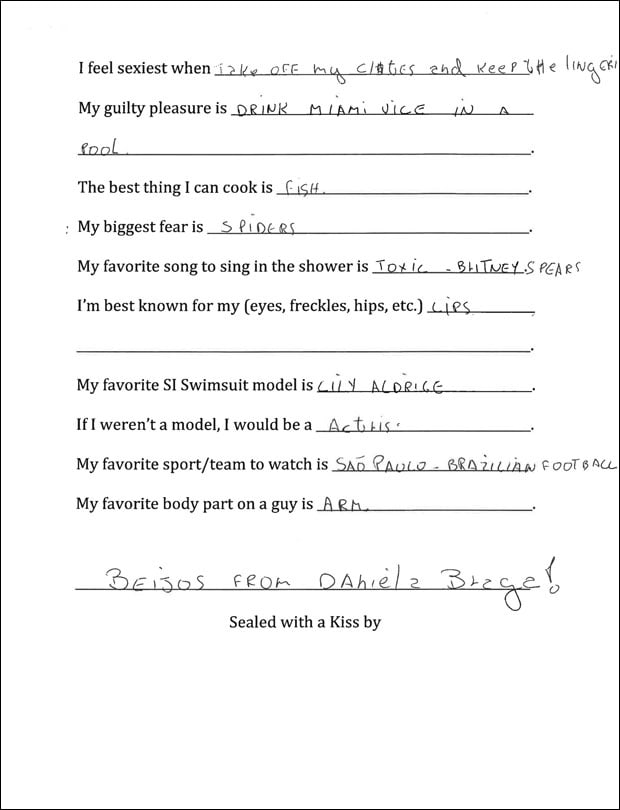 I feel sexiest when take OFF my clotes and keep the lingeri
My guilty pleasure is DRINK MIAMI VICE IN A
POOL.
The best thing I can cook is FISH.
: My biggest fear is SPIDERS.
My favorite song to sing in the shower is TOXIC - BRITNEY SPEARS
I'm best known for my (eyes, freckles, hips, etc.) LIPS
.
My favorite SI Swimsuit model is LILY ALDRIGE.
If I weren't a model, I would be a Actris.
My favorite sport/team to watch is SAÕ PAULO - BRAZILIAN FOOTBALL
My favorite body part on a guy is ARM.
BEIJOS FROM DANiela Braga!
Sealed with a Kiss by